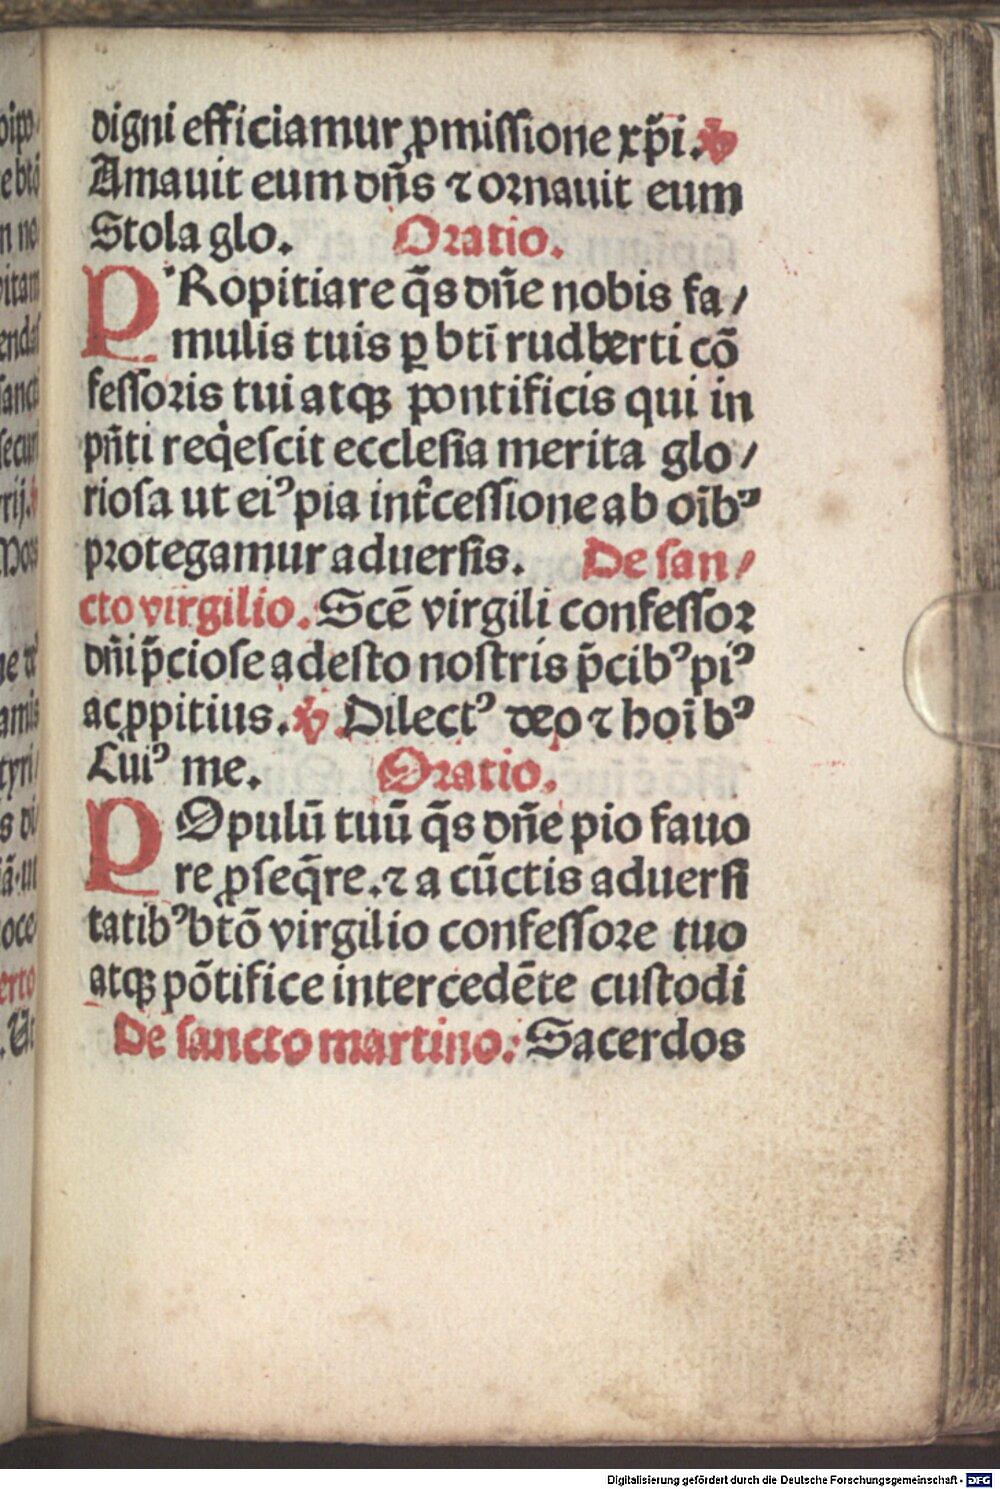 digni efficiamur ꝓmissione xp̄i. ℣
Amauit eum dn̄s ⁊ ornauit eum
Stola glo. Oratio.
PRopitiare q̄s dn̄e nobis fa/
mulis tuis ꝑ bti̅ rudberti cō
fessoris tui atqꝫ pontificis qui in
pn̄ti reqͥescit ecclesia merita glo/
riosa ut eiꝰ pia int̄cessione ab oi̅bꝰ
protegamur aduersis. De san/
cto virgilio. Scē virgili confessor
dn̄i p̄ciose adesto nostris p̄cibꝰ piꝰ
ac ꝓpitius. ℣ Dilectꝰ deo ⁊ hoi̅bꝰ
Cuiꝰ me. Oratio.
POpulū tuū q̄s dn̄e pio fauo
re ꝓseq̄re. ⁊ a cūctis aduersi
tatibꝰ btō virgilio confessore tuo
atqꝫ pōtifice intercedēte custodi
De sancto martino: Sacerdos
Digitalisierung gefördert durch die Deutsche Forschungsgemeinschaft - DFG